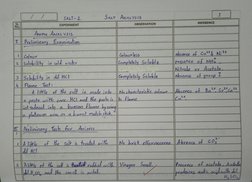 SALT-2 SALT ANALYSIS 1
EXPERIMENT OBSERVATION INFERENCE
ANION ANALYSIS
I. Preliminary Examination
1. Colour Colourless Absence of Cu²⁺ & Ni²⁺
2. Solubility in cold water Completely Soluble presence of
Nitrate or Acetate
3. Solubility in dil HCl Completely Soluble Absence of group I
4. Flame Test
A little of the salt is made into No characteristic colour Absence of
a paste with conc. HCl and the paste is to flame
introduced into a bunsen flame by using
a platinum wire or a burnt match stick.
II. Preliminary Tests for Anions
1. A little of the salt is treated with No brisk effervescence Absence of CO₃²⁻
dil HCl
2. A little of the salt is treated with dil Vinegar Smell Presence of acetate Acetate
H₂SO₄ and the mixture is produces acetic acid with dil
H₂SO₄